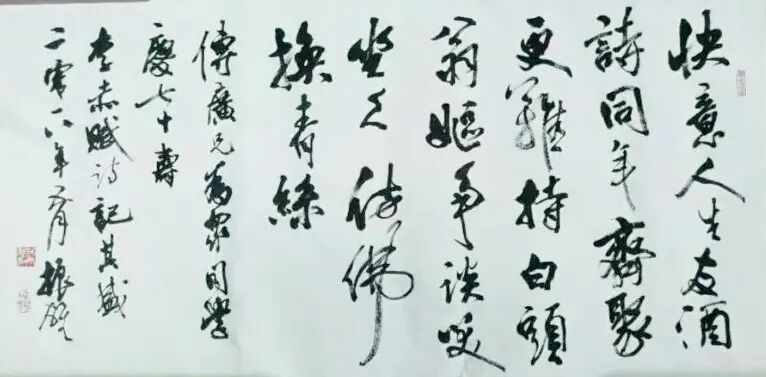 快意人生友酒
詩同年齊聚
更難持白頭
翁嫗爭談笑
坐久彷彿
換青絲
傅廣兄為眾同學
慶七十壽
李赤賦詩記其盛
二零一八年月振